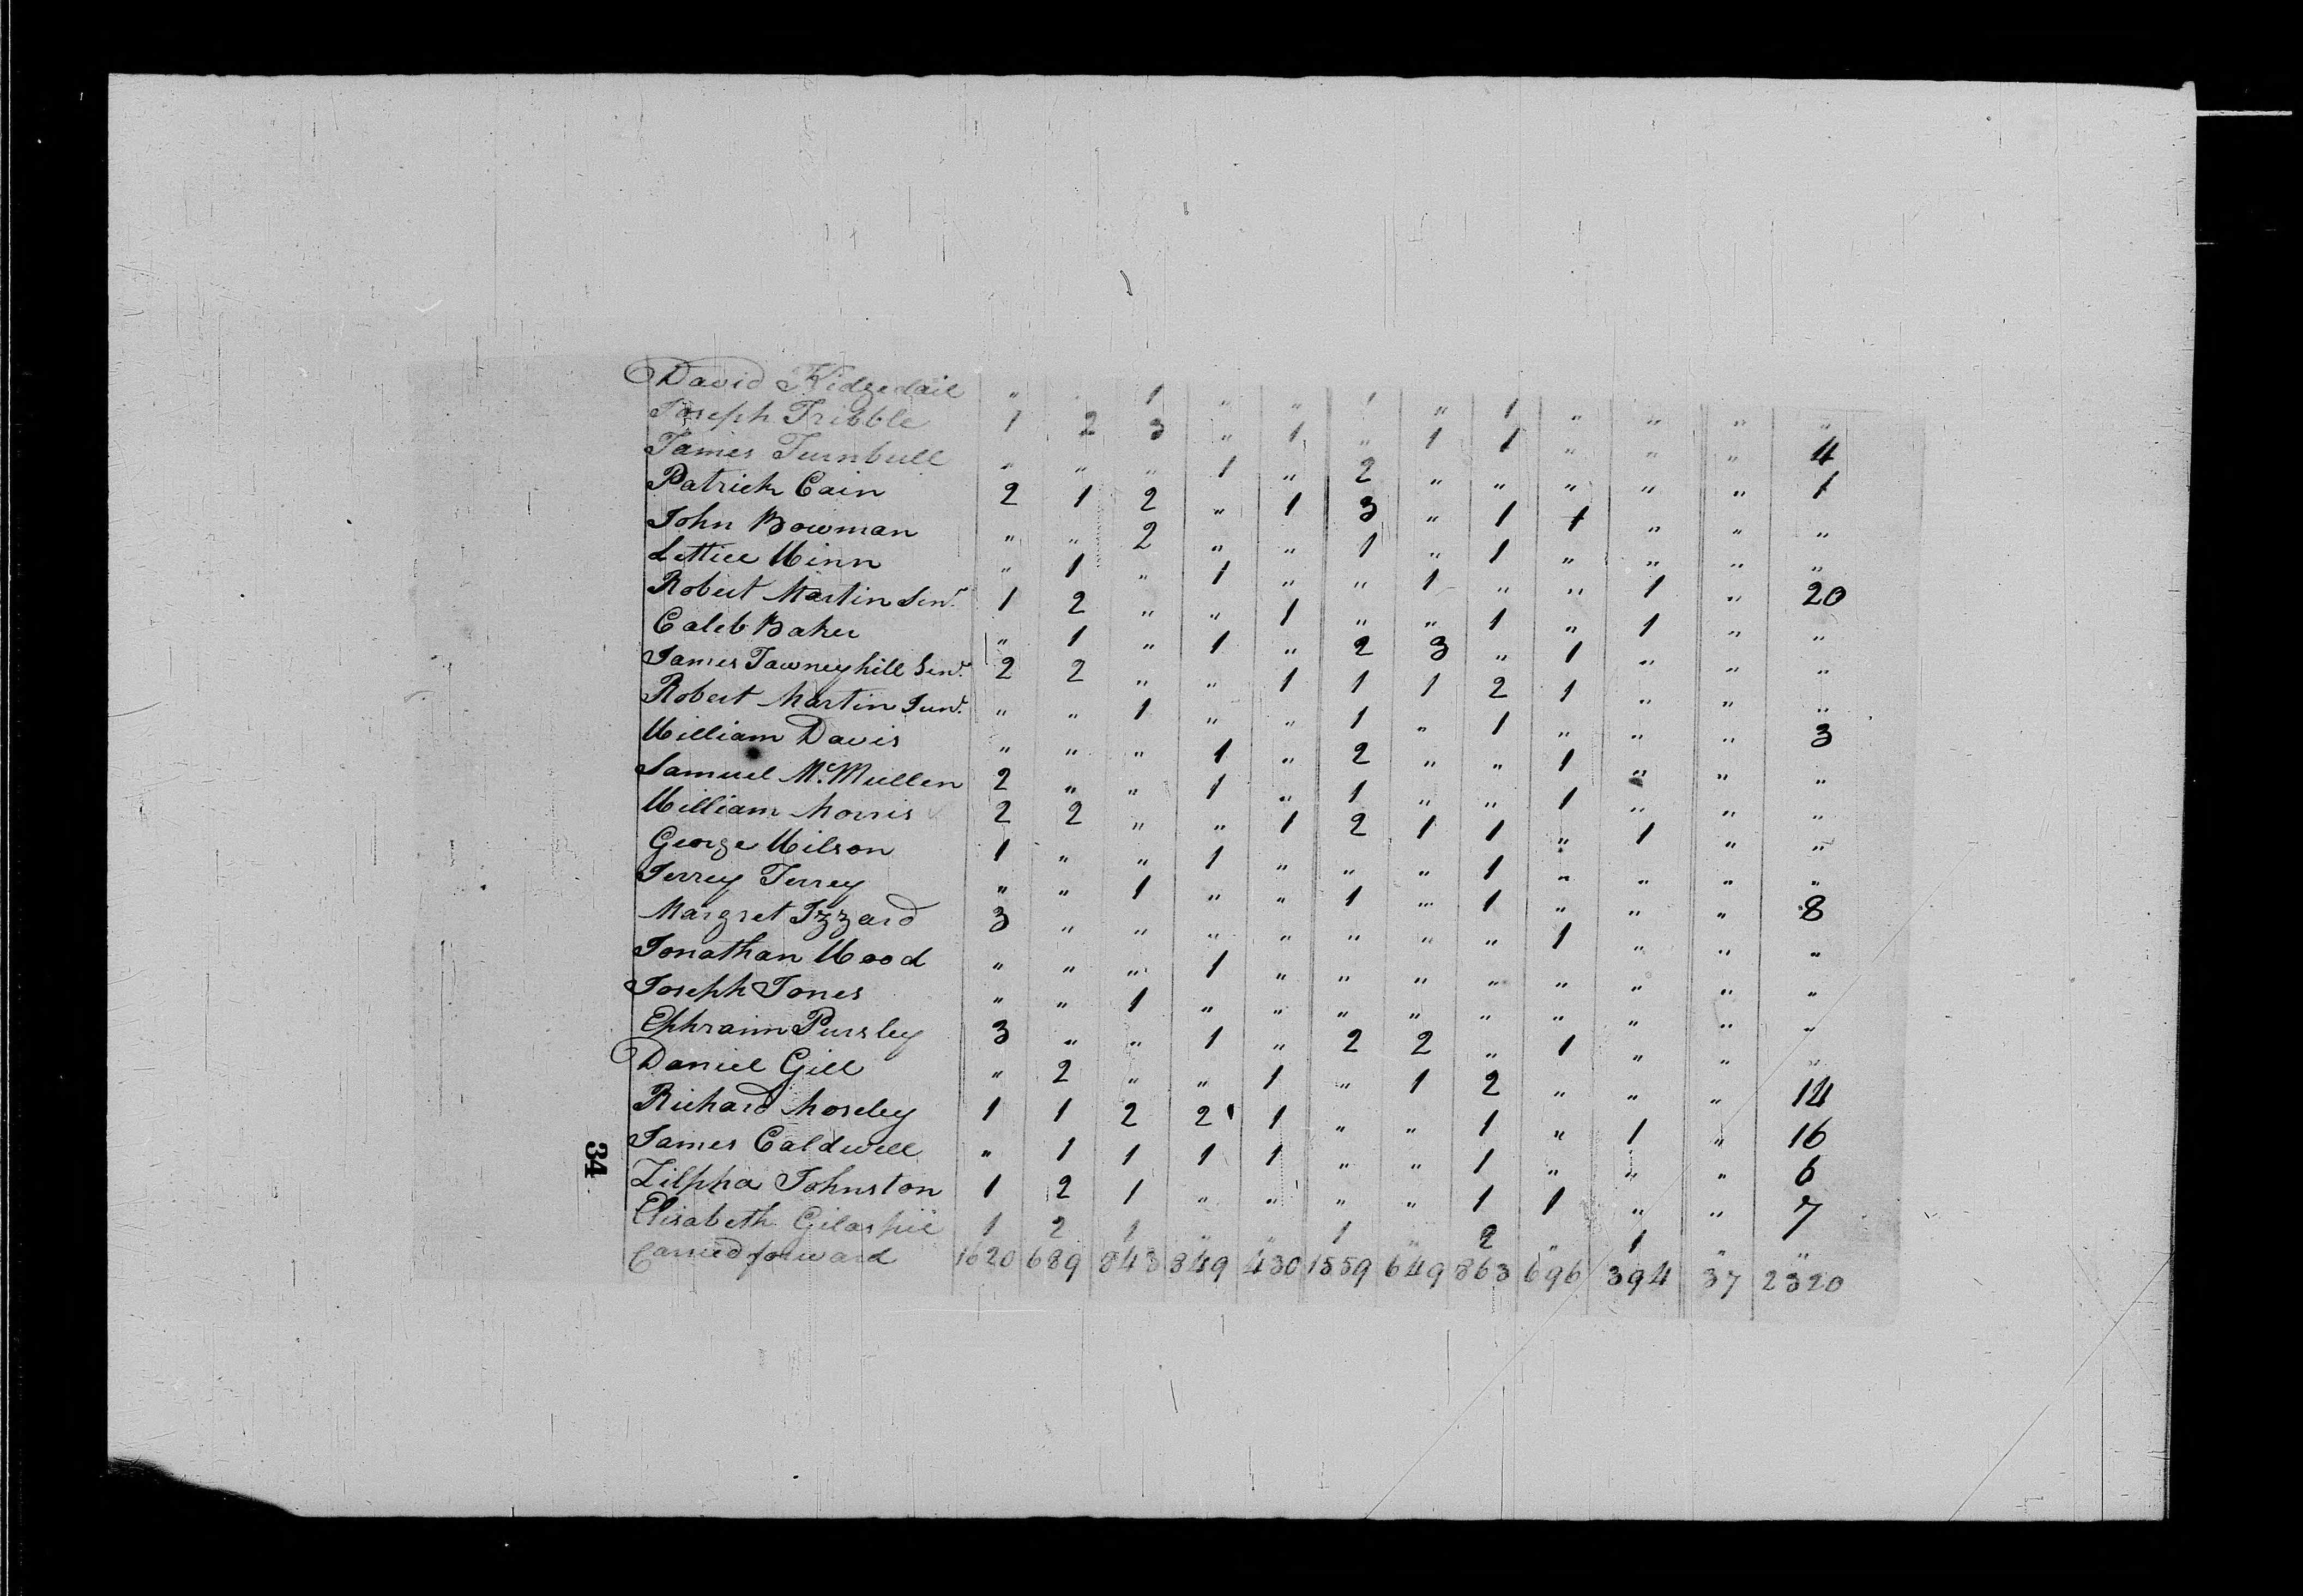 David Kidgedail " " 1 " " 1 " 1 " " " "
Joseph Tribble 1 2 3 " 1 " 1 1 " " " 4
James Turnbull " " " 1 " 2 " " " " " 1
Patrick Cain 2 1 2 " 1 3 " 1 1 " " "
John Bowman " " 2 " " 1 " 1 " " " "
Lettice Winn " 1 " 1 " " 1 " " 1 " 20
Robert Martin Senr. 1 2 " " 1 " " 1 " 1 " "
Caleb Baker " 1 " 1 " 2 3 " 1 " " "
James Tawneyhill Senr. 2 2 " " 1 1 1 2 1 " " "
Robert Martin Junr. " " 1 " " 1 " 1 " " " 3
William Davis " " " 1 " 2 " " 1 " " "
Samuel McMullen 2 " " 1 " 1 " " 1 " " "
William Morris 2 2 " " 1 2 1 1 " 1 " "
George Wilson 1 " " 1 " " " 1 " " " "
Jerrey Terrey " " 1 " " 1 " 1 " " " 8
Margret Izzard 3 " " " " " " " 1 " " "
Jonathan Wood " " " 1 " " " " " " " "
Joseph Jones " " 1 " " " " " " " " "
Ephraim Pursley 3 " " 1 " 2 2 " 1 " " "
Daniel Gill " 2 " " 1 " 1 2 " " " 14
Richard Moseley 1 1 2 2 1 " " 1 " 1 " 16
James Caldwell " 1 1 1 1 " " 1 " " " 6
34
Zilpha Johnston 1 2 1 " " " " 1 1 " " 7
Elisabeth Gilaspie 1 2 1 " " 1 " 2 " 1 " "
Carried forward 1620 689 843 849 430 1559 649 863 696 394 37 2320